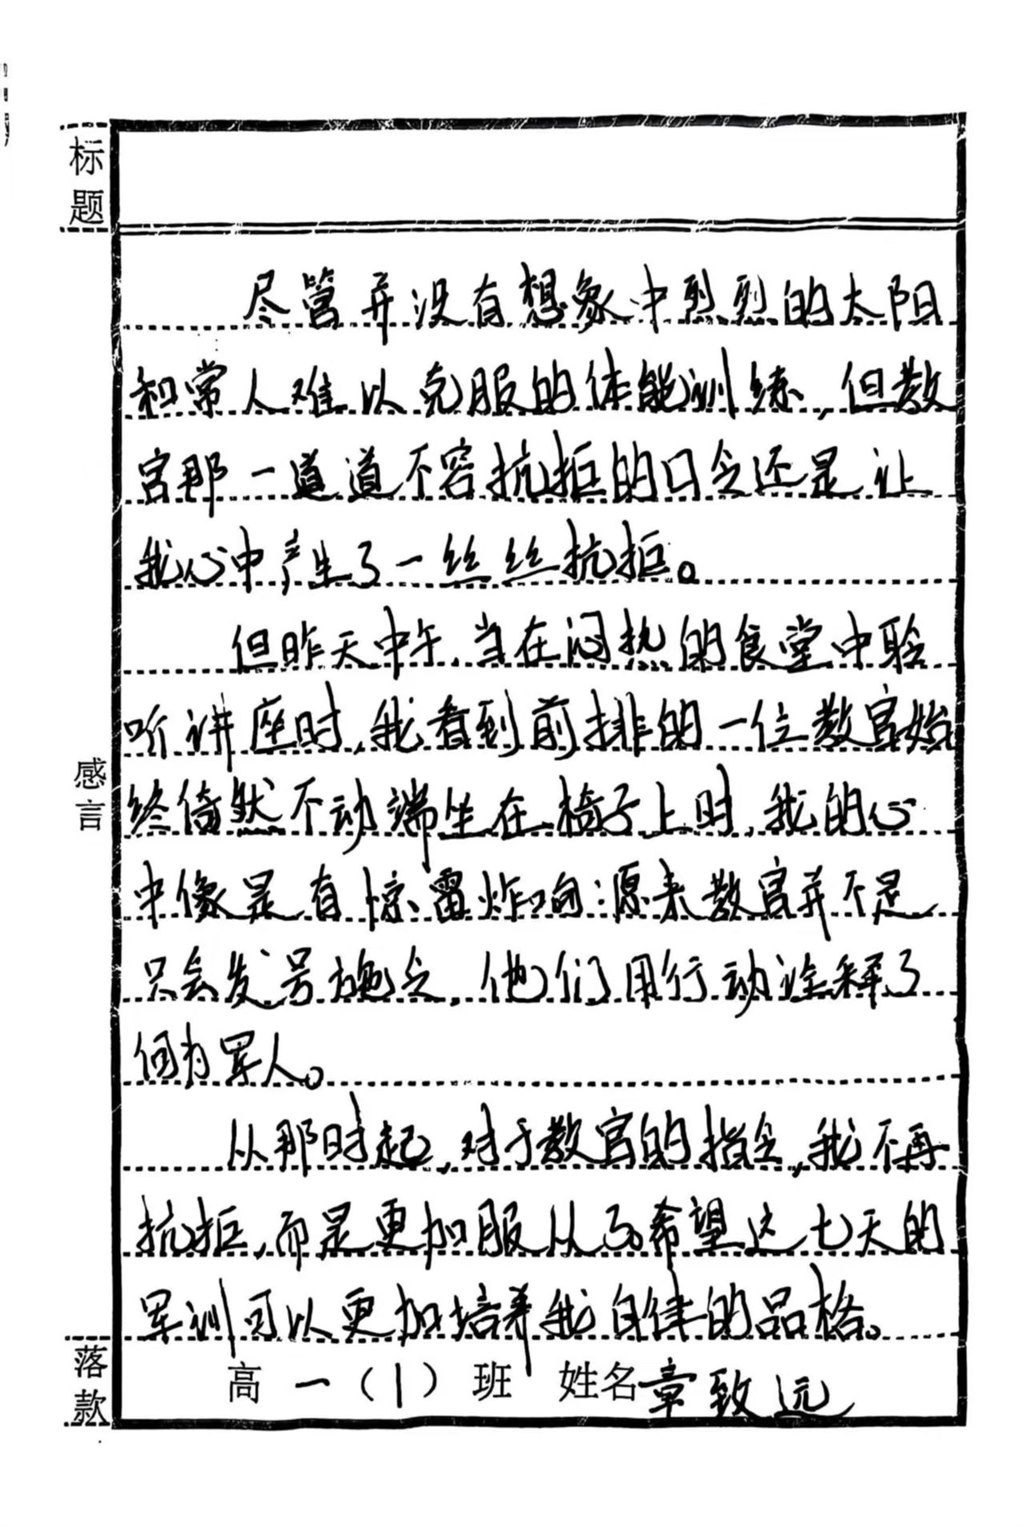 标题
尽管并没有想象中烈烈的太阳
和常人难以克服的体能训练,但教
官那一道道不容抗拒的口令还是让
我心中产生了一丝丝抗拒。
但昨天中午,当在闷热的食堂中聆
听讲座时,我看到前排的一位教官始
终倚然不动端坐在椅子上时,我的心
中像是有惊雷炸响:原来教官并不是
只会发号施令,他们用行动诠释了
何为军人。
从那时起,对于教官的指令,我不再
抗拒,而是更加服从了。希望这七天的
军训可以更加培养我自律的品格。
感言
落款
高一(1)班 姓名章致远